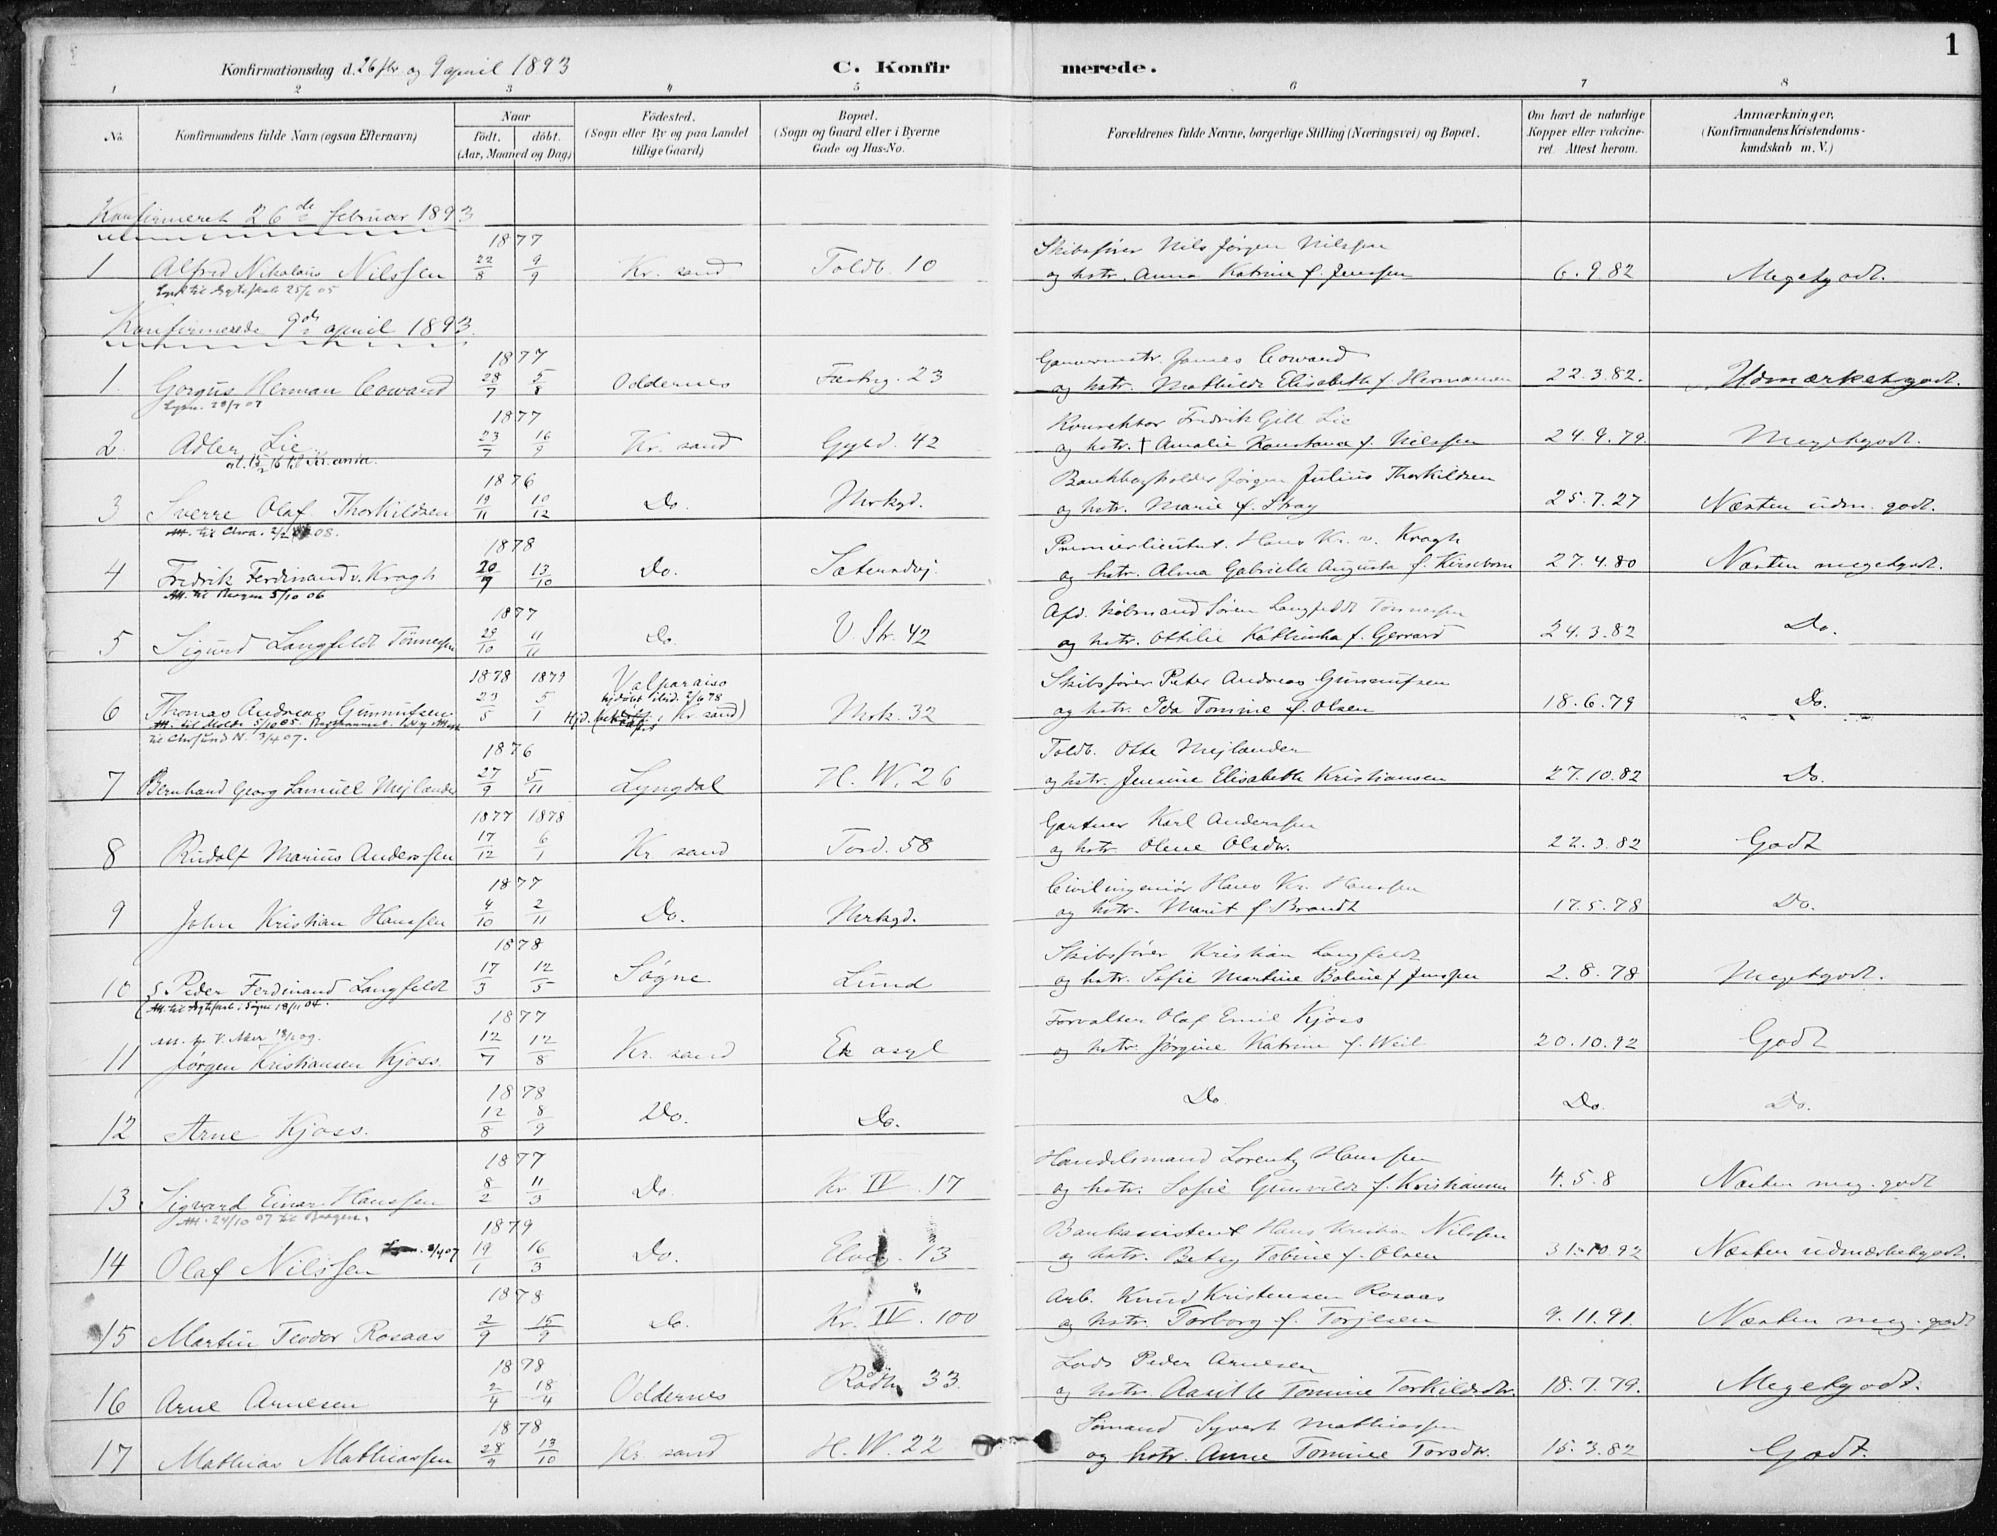 1
Konfirmationsdag d. 26 fbr og 9 april 1893 C. Konfir merede.
1 2 3 4 5 6 7 8
No. Konfirmandens fulde Navn (ogsaa Efternavn) Naar født. døbt. (Aar, Maaned og Dag) Födested. (Sogn eller By og paa Landet tillige Gaard) Bopæl. (Sogn og Gaard eller i Byerne Gade og Hus-No. Forældrenes fulde Navne, borgerlige Stilling (Næringsvei) og Bopæl. Om havt de naturlige Kopper eller vakcineret. Attest herom. Anmærkninger, (Konfirmandens Kristendomskundskab m. V.)
Konfirmeret 26de februar 1893
1877 Skibsfører Nils Jørgen Nilssen
1 Alfred Nikolaus Nilssen 22/8 9/9 Kr. sand Toldb. 10 og hstr. Anna Katrine f. Jenssen 6.9.82 Megetgodt.
25/6 05
Konfirmerede 9de april 1893.
1877 James Cowand
1. Gorgus Herman Cowand 28/7 5/8 Oddernes Fæstng. 23 og hstr. Mathilde Elisabeth f. Hermansen 22.3.82. Udmærketgodt.
1877 Konrektor Fredrik Gill Lie
2. Adler Lie 23/7 16/9 Kr. sand Gyld. 42 og hstr. † Amalie Konstance f. Nilssen 24.9.79. Megetgodt.
at. 15/2 16 til Kr.ania.
1876 Bankbogholder Jørgen Julius Thorkildsen
3 Sverre Olaf Thorkildsen 19/11 10/12 Do. Mrkgd. og hstr. Marie f. Stray 25.7.27 Næsten udm. godt.
Att. til Chra. 2/2 08.
1878 Premierlieutnt. Hans Kr. v. Krogh
4 Fredrik Ferdinand v. Krogh 20/9 13/10 Do. Sætersdvj. og hstr. Alma Gabrielle Augusta f. Kirsebom 27.4.80 Næsten megetgodt.
Att. til 5/10 06
1877 Afd. Kobmand Søren Langfeldt Tønnessen
5 Sigurd Langfeldt Tønnessen 29/10 11/11 Do. V. Str. 42 og hstr. Ottilie Kathinka f. Gerrard 24.3.82 Do.
1878 1879 Valparaiso Skibsfører Peter Andreas Gunnufsen
6 Thomas Andreas Gunnufsen 23/5 5/1 hjdøbt 2/6 78 Hjd. i Kr. sand) Mrk. 32 og hstr. Ida Tomine f. Olsen 18.6.79 Do.
Att. til Molde 5/10 05.
til Chrsund N. 3/4 07.
1876 Toldb. Otte Mejlander
7 Bernhard Georg Samuel Mejlander 27/9 5/11 Lyngdal H. W. 26 og hstr. Jensine Elisabeth Kristiansen 27.10.82 Do.
1877 1878 Gartner Karl Anderssen
8 Rudolf Marius Anderssen 17/12 6/1 Kr sand Tord. 58 og hstr. Oline Olsdtr. 22.3.82 Godt
1877 Civilingeniør Hans Kr. Hanssen
9 John Kristian Hanssen 4/10 2/11 Do. Mrkgd. og hstr. Marit f. Brandt 17.5.78 Do.
1878 Skibsfører Kristian Langfeldt
10 Peder Ferdinand Langfeldt 17/3 12/5 Søgne Lund og hstr. Sofie Martine Boline f. Jenssen 2.8.78 Megetgodt.
Att. til Søgne 18/11 04.
1877 Forvalter Olaf Emil Kjoss
Att. V. Aker 18/2 09.
11 Jørgen Kristiansen Kjoss. 12/7 12/8 Kr. sand Ek asyl og hstr. Jørgine Katrine f. Weil 20.10.92 Godt
1878
12 Arne Kjoss. 12/8 8/9 Do. Do. Do. Do. Do.
1877 Handelsmand Lorentz Hanssen
13 Sigvard Einar Hanssen 8/2 11/3 Do. Kr. IV. 17 og hstr. Sofie Gunvilde f. Kristiansen 4.5.8 Næsten meg. godt
Att. 24/10 07 til
1879 Bankassistent Hans Kristian Nilssen
14 Olaf Nilssen 3/4 07 19/1 16/3 Do. 13 og hstr. Betsy Tobine f. Olsen 31.10.92 Næsten udmærketgodt.
1878 Arb. Knud Kristensen Rosaas
15 Martin Teodor Rosaas 2/9 15/9 Do. Kr. IV. 100 og hstr. Torborg f. Torjesen 9.11.91. Næsten meg. godt
1878 Lods Peder Arnesen
16 Arne Arnesen 2/4 18/4 Oddernes Rådh. 33 og hstr. Aasille Tomine Torkildsdtr. 18.7.79. Megetgodt.
1878 Sømand Syvert Mathiassen
17 Mathias Mathiassen 28/9 13/10 Kr. sand H. W. 22 og hstr. Anne Tomine Torsdtr. 15.3.82 Godt.